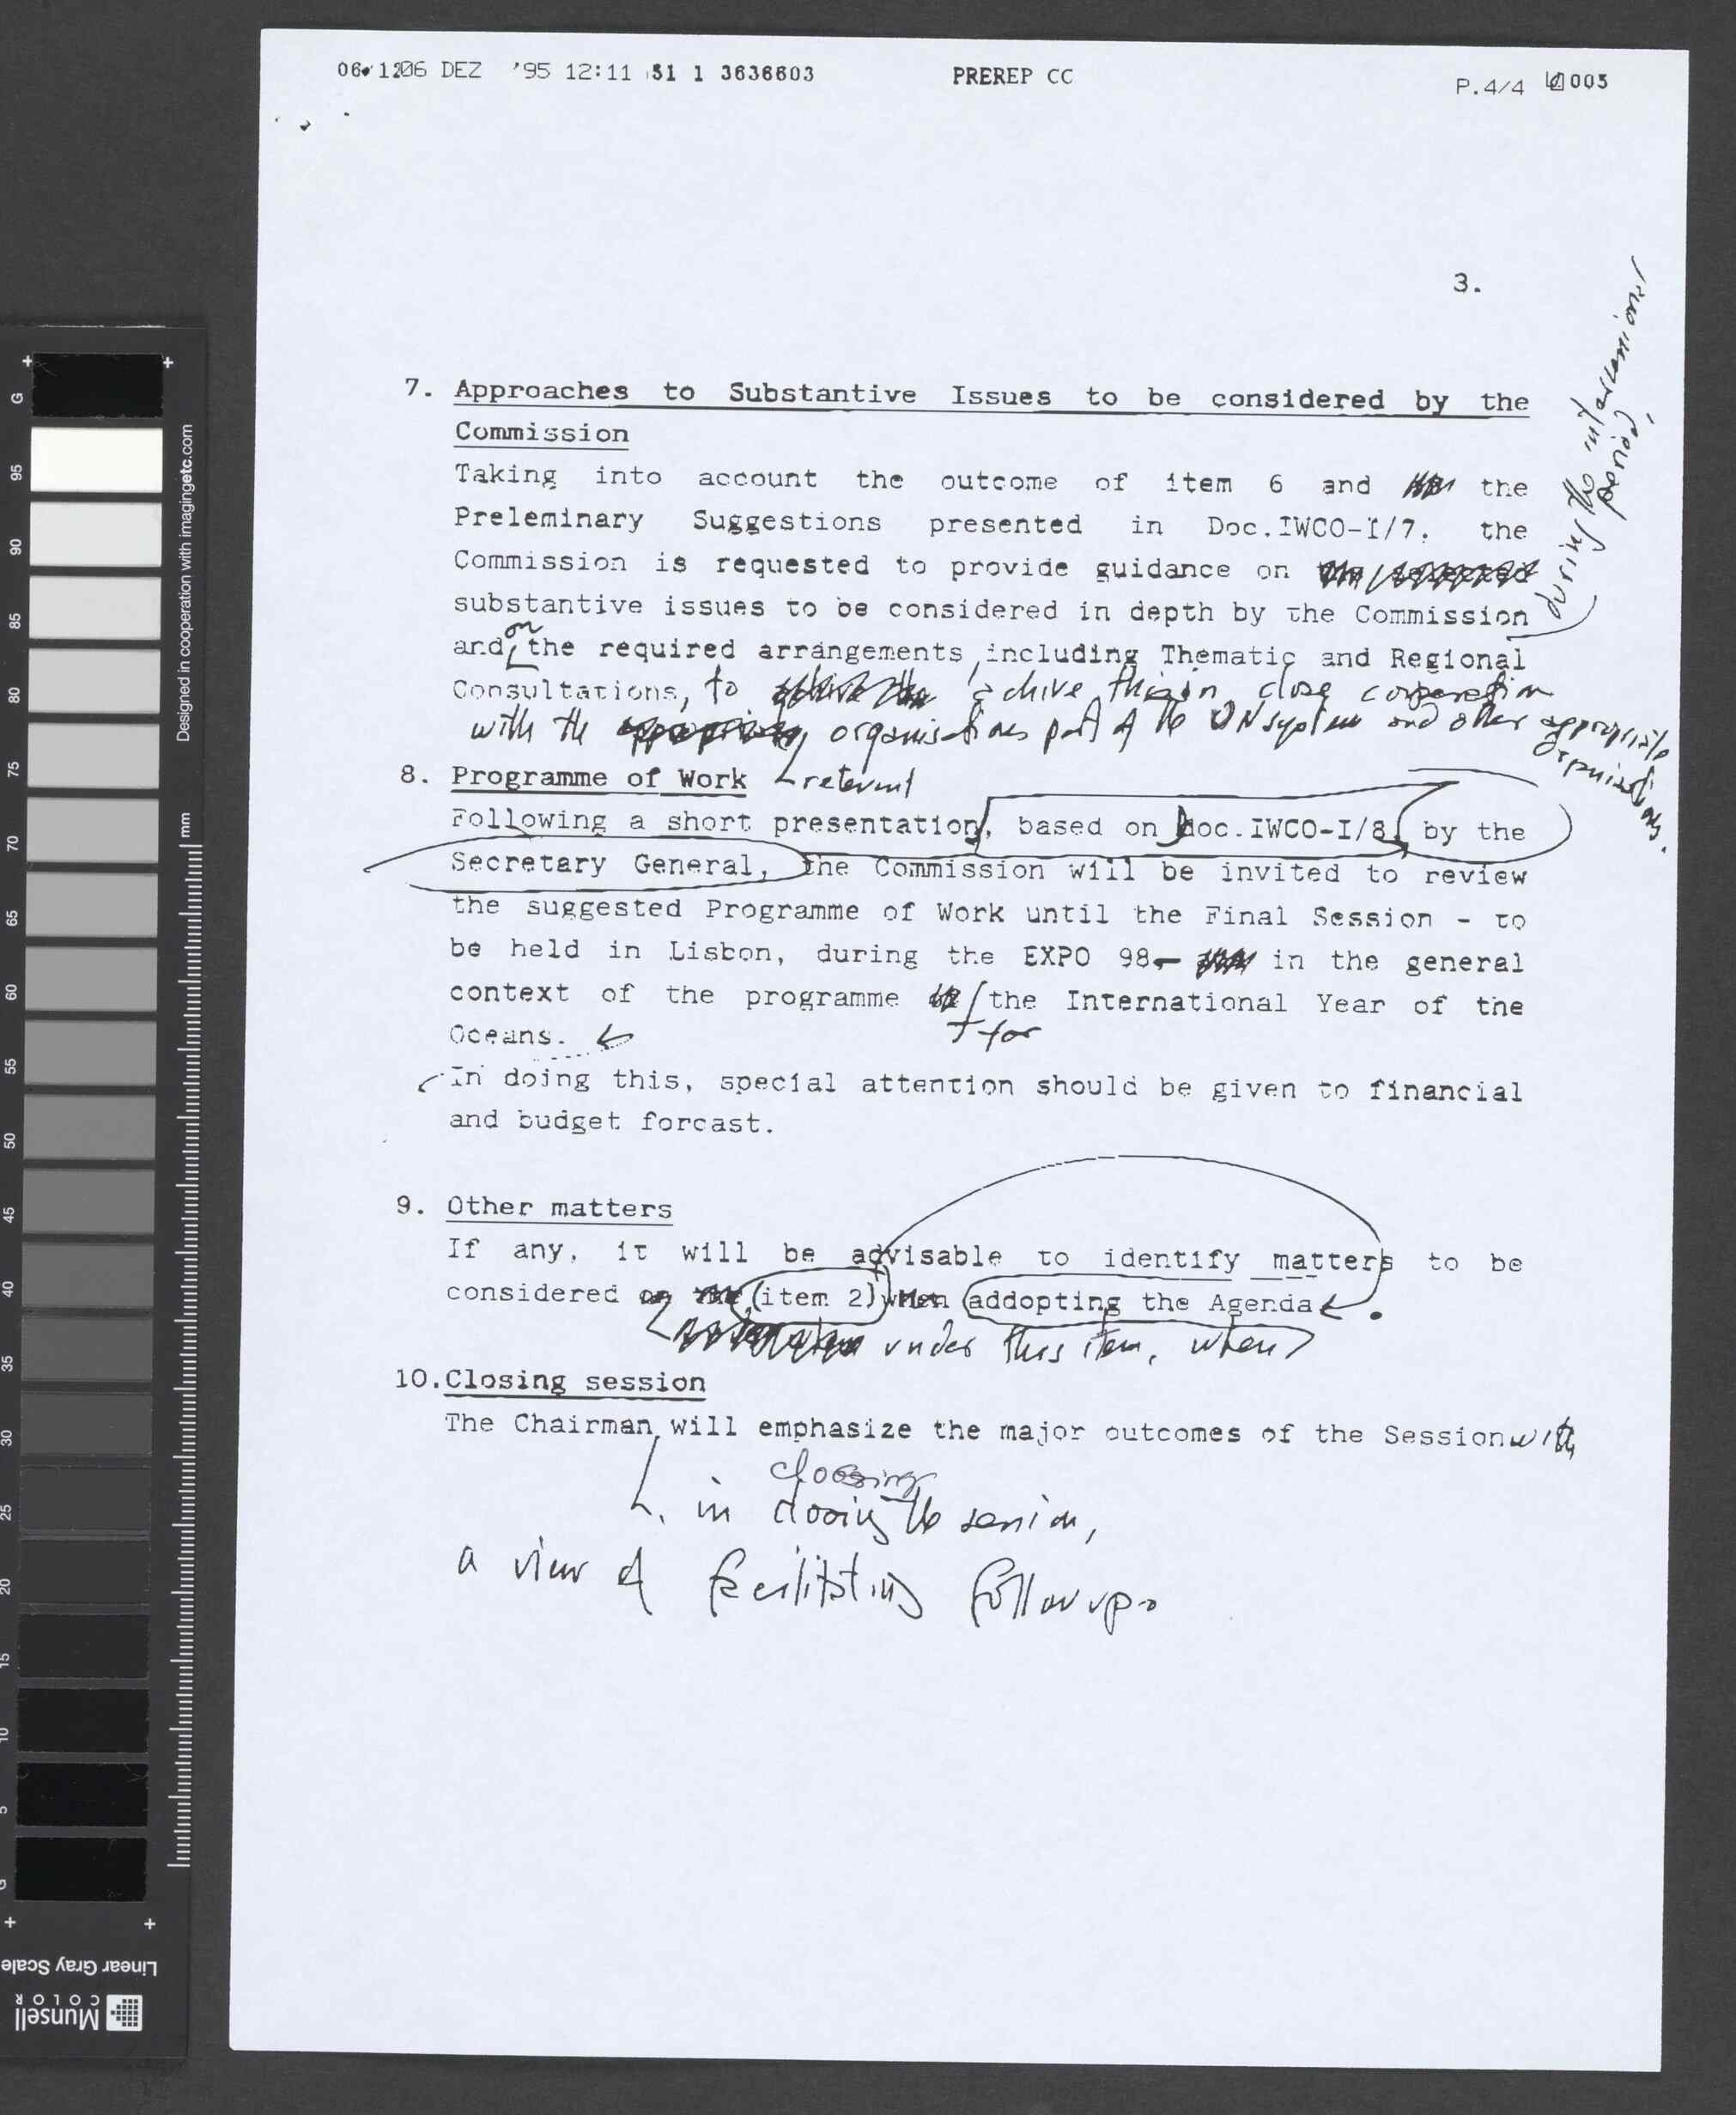 06.12 06 DEZ '95 12:11 51 1 3636603 PREREP CC P.4/4 005
3.
7. Approaches to Substantive Issues to be considered by the
Commission
Taking into account the outcome of item 6 and the
Preleminary Suggestions presented in Doc.IWCO-I/7, the
Commission is requested to provide guidance on
substantive issues to be considered in depth by the Commission
during the intersessional
period,
on
and the required arrangements, including Thematic and Regional
Consultations, to achive this in close cooperation
with the organisations part of the UN system and other appropriate
organisations.
relevant
8. Programme of Work
Following a short presentation, based on Doc.IWCO-I/8, by the
Secretary General, the Commission will be invited to review
the suggested Programme of Work until the Final Session - to
be held in Lisbon, during the EXPO 98- in the general
context of the programme the International Year of the
for
Oceans.
In doing this, special attention should be given to financial
and budget forcast.
9. Other matters
If any, it will be advisable to identify matters to be
considered (item 2) when addopting the Agenda.
under this item, when
10. Closing session
The Chairman will emphasize the major outcomes of the Session with
closing
in closing the session,
a view of facilitating follow up.
G
95
90
85
80
75
70
65
60
55
50
45
40
35
30
25
20
15
10
5
G
Designed in cooperation with imagingetc.com
mm
Linear Gray Scale
Munsell
COLOR